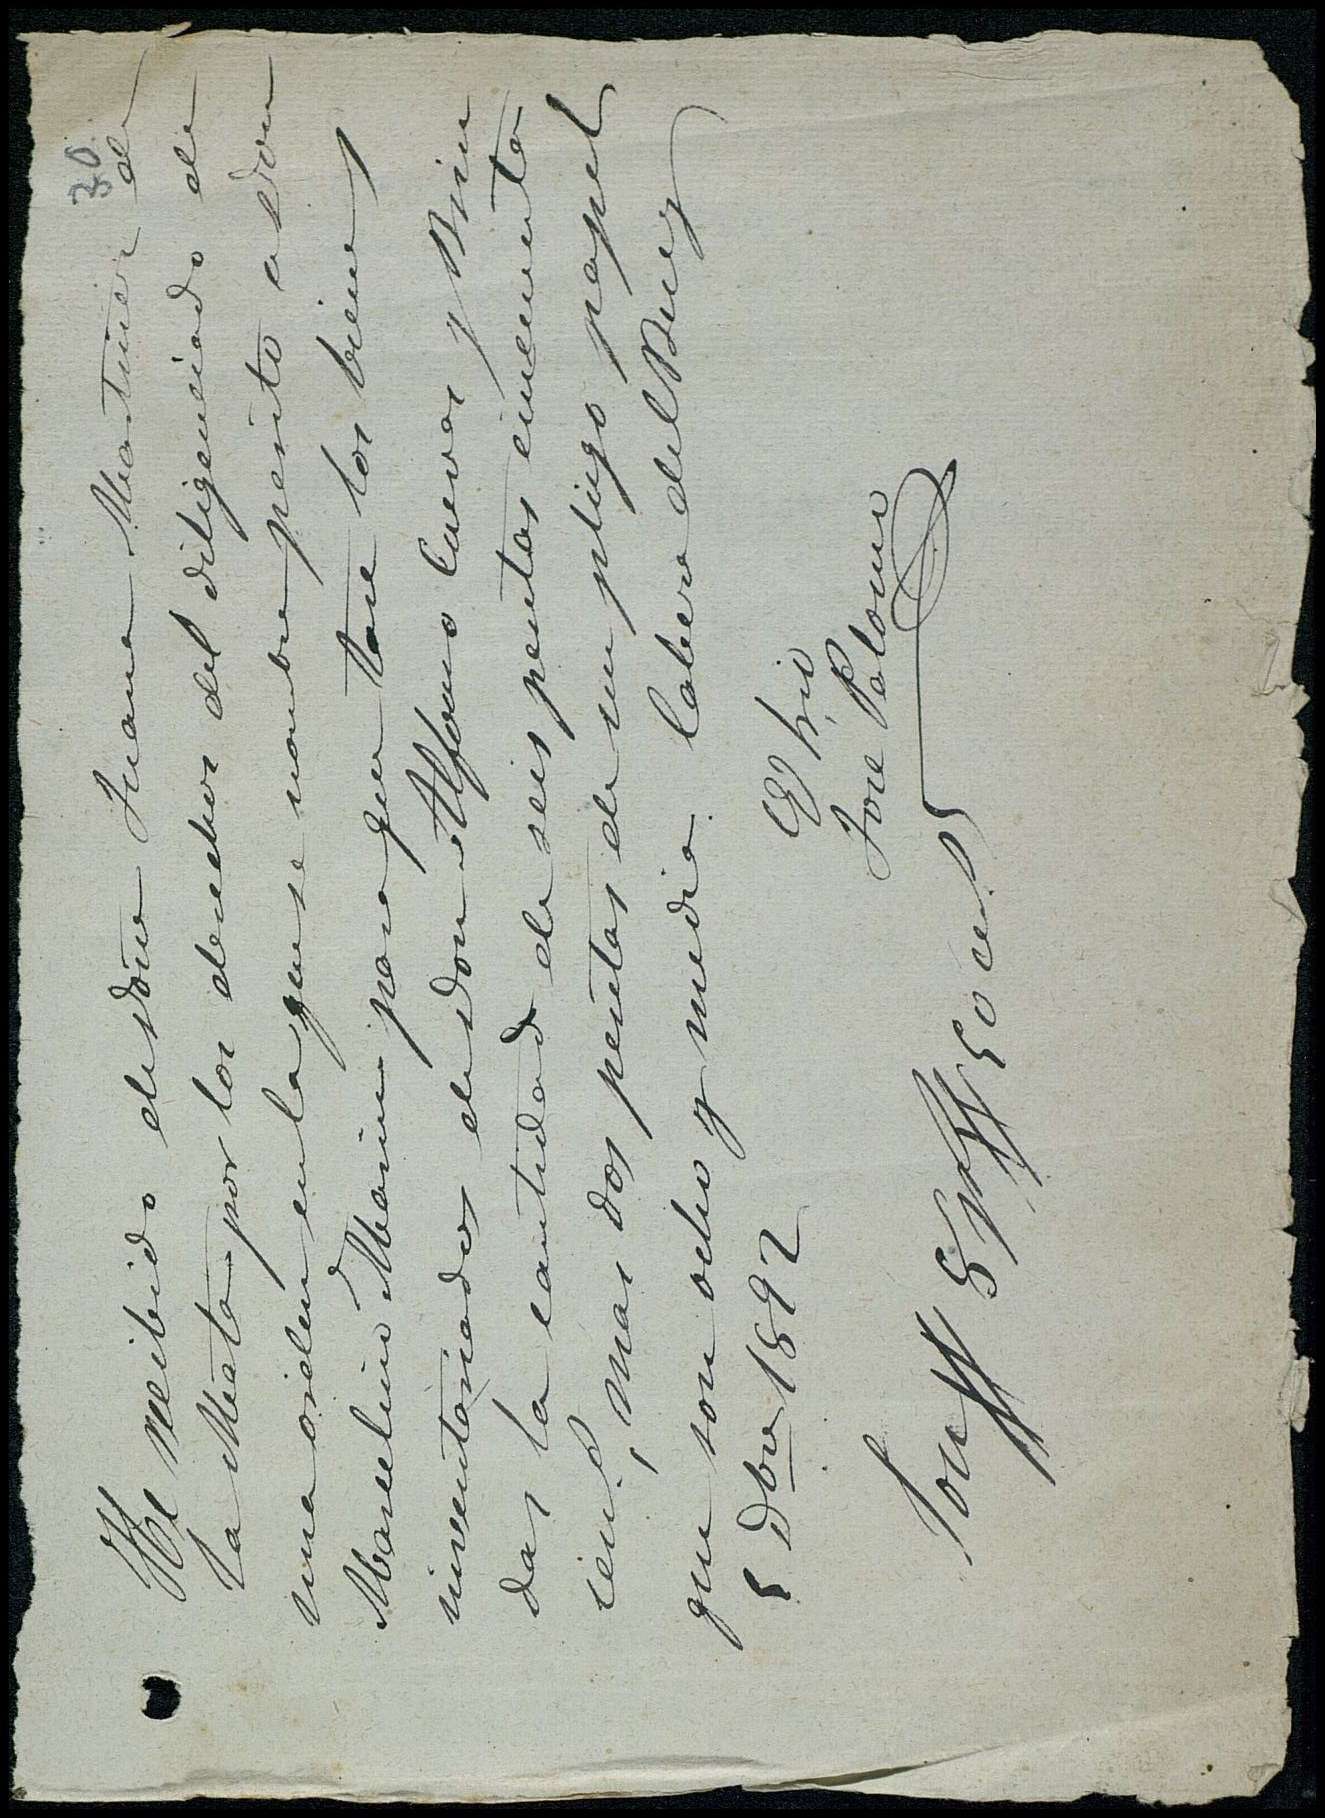 30
He recibido de doña Juana Martinez de
la Mata por los derechos del diligenciado de
una orden en la que se nombra perito a don
Marcelino Marin para que tase los bienes
inventariados de don Alfonso Cuevas y Brin
das la cantidad de seis pesetas cincuenta
cens, mas dos pesetas de un pliego papel
que son ocho y media. Cabeza del Buey
5 Dbre 1892
José Palomo
Son 8 50 cs